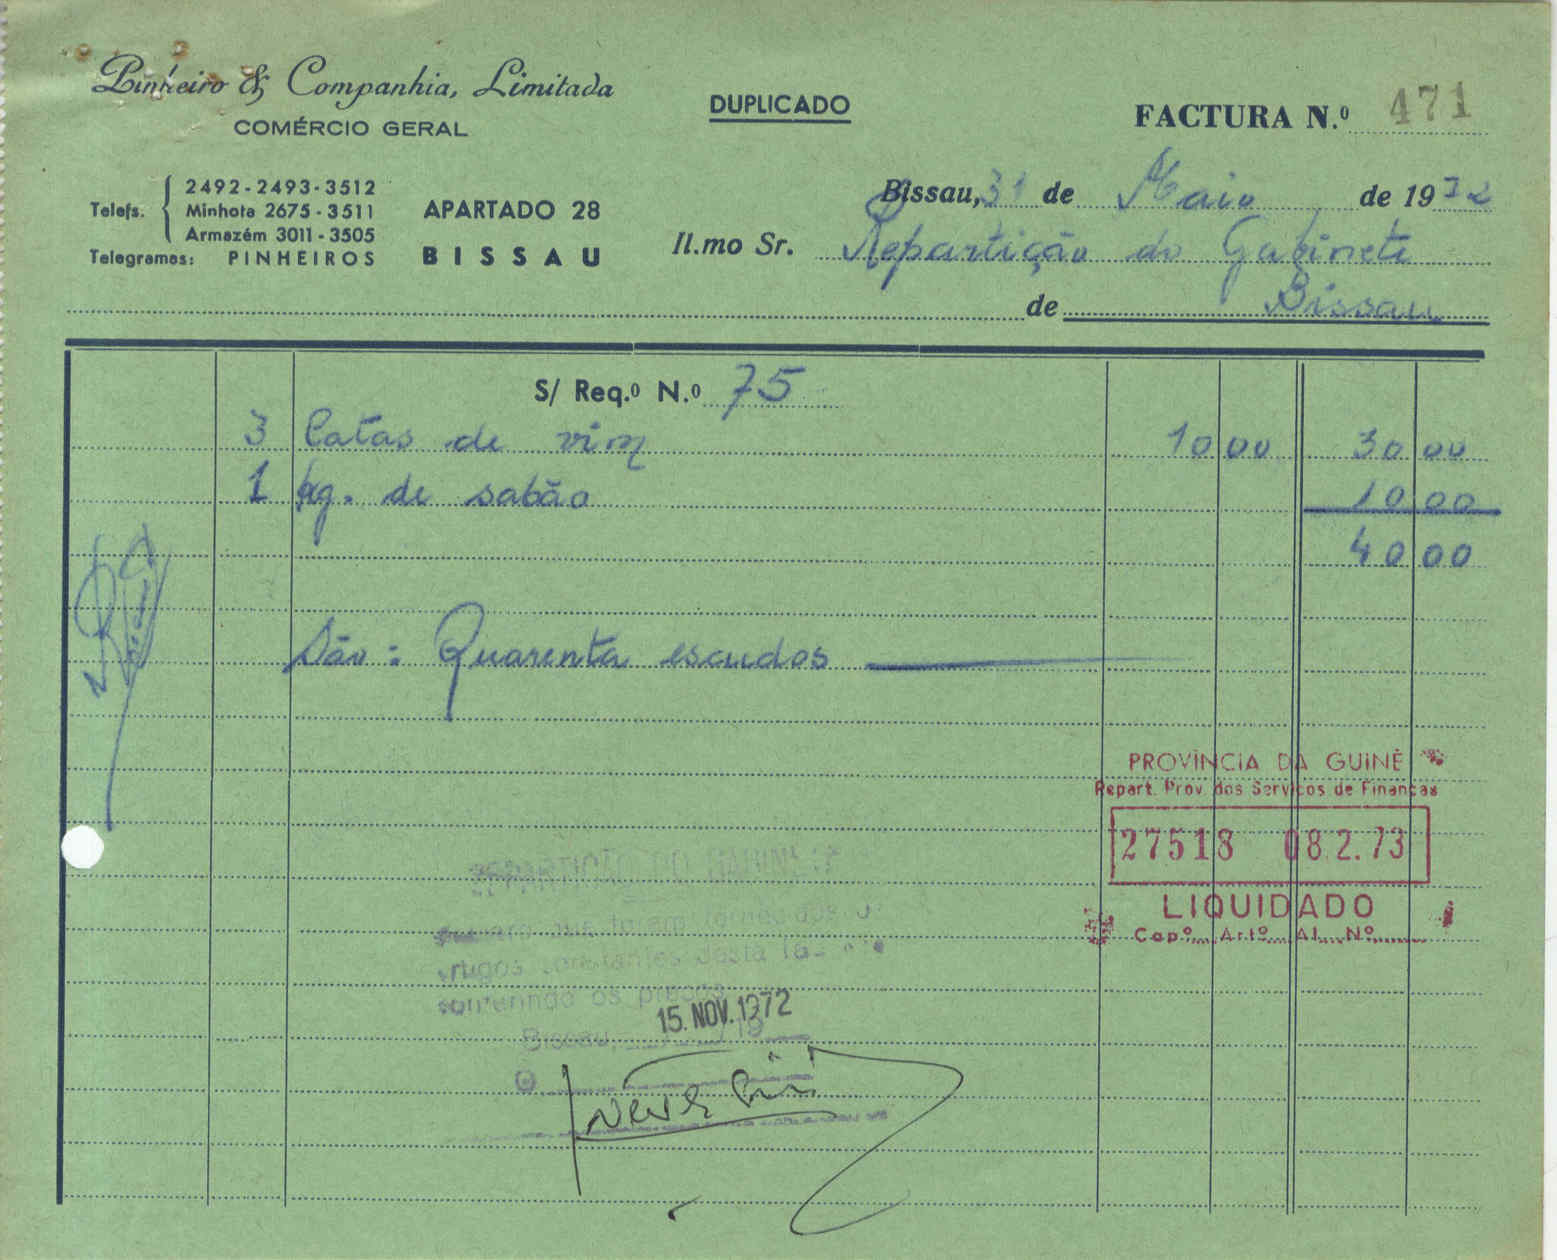 Pinheiro & Companhia, Limitada
COMÉRCIO GERAL
DUPLICADO
FACTURA N.º 471
Telefs. 2492-2493-3512
Minhota 2675-3511
Armazém 3011-3505
Telegramas: PINHEIROS
APARTADO 28
BISSAU
Bissau, 31 de Maio de 1972
Il.mo Sr. Repartição do Gabinete
de Bissau
S/ Req.º N.º 75
3 Latas de vim 10 00 30 00
1 kg. de sabão 10 00
40 00
São: Quarenta escudos
PROVÍNCIA DA GUINÉ
Repart. Prov. dos Serviços de Finanças
27518 08.2.73
LIQUIDADO
Capº Artº Al. Nº
REPARTIÇÃO DO GABINETE
que foram fornecidos
artigos constantes desta
conferindo os preços
15. NOV. 1972
Bissau, / / 19
O